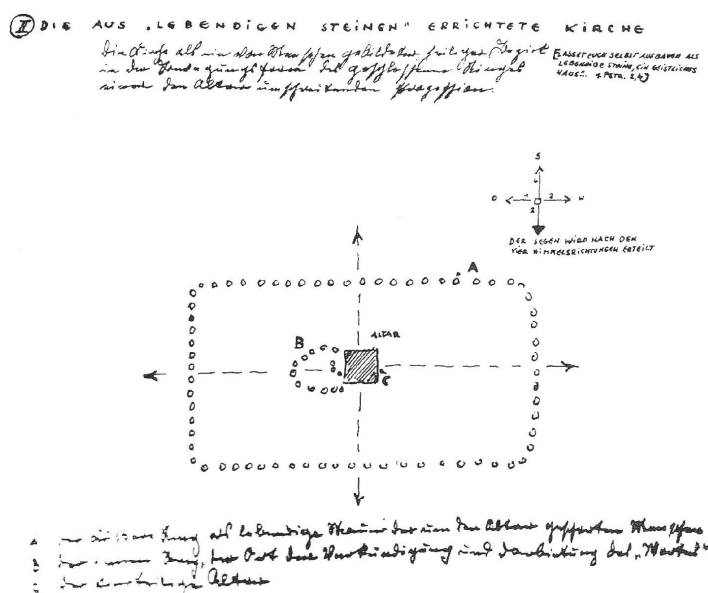 II DIE AUS „LEBENDIGEN STEINEN“ ERRICHTETE KIRCHE
Die Kirche als ein von Menschen gebildeter heiliger Bezirk
in der Bewegungsform des geschlossenen Ringes
einer den Altar umschreitenden Prozession.
LASSET EUCH SELBST AUFBAUEN ALS
LEBENDIGE STEINE, EIN GEISTLICHES
HAUS... 1 PETR. 2,4
S
O W
4
1 3
2
DER SEGEN WIRD NACH DEN
VIER HIMMELSRICHTUNGEN ERTEILT
A
ALTAR
B
C
A der äussere Ring als lebendige Mauer der um den Altar gescharten Menschen
B der innere Ring, der Ort der Verkündigung und Darbietung des „Wortes“
C der Altar